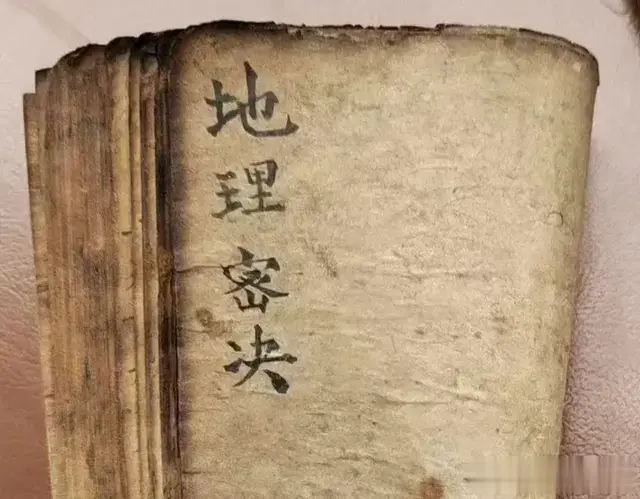 地理密决